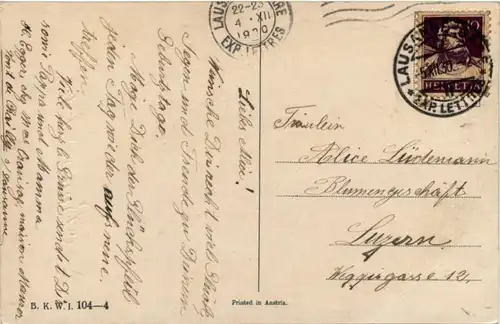 LAUSANNE GARE
22-23
4. XII
1930
EXP. LETTRES
LAUSANNE
EXP. LETTRES
10
HELVETIA
Liebs Alice!
Wünsche Dir recht viel Glück,
Segen und Freude zu Deinem
Geburtstage.
Möge Dich der Glückspfeil
jeden Tag wieder aufs neue
treffen.
Viele herzl. Grüsse sendet Dir
sowie Papa und Mamma
H. Egger, chez Mme
maison
Lausanne
Fräulein
Alice Lüdemann
Blumengeschäft
Luzern
Weggisgasse 12.
B. K. W. I. 104—4
Printed in Austria.